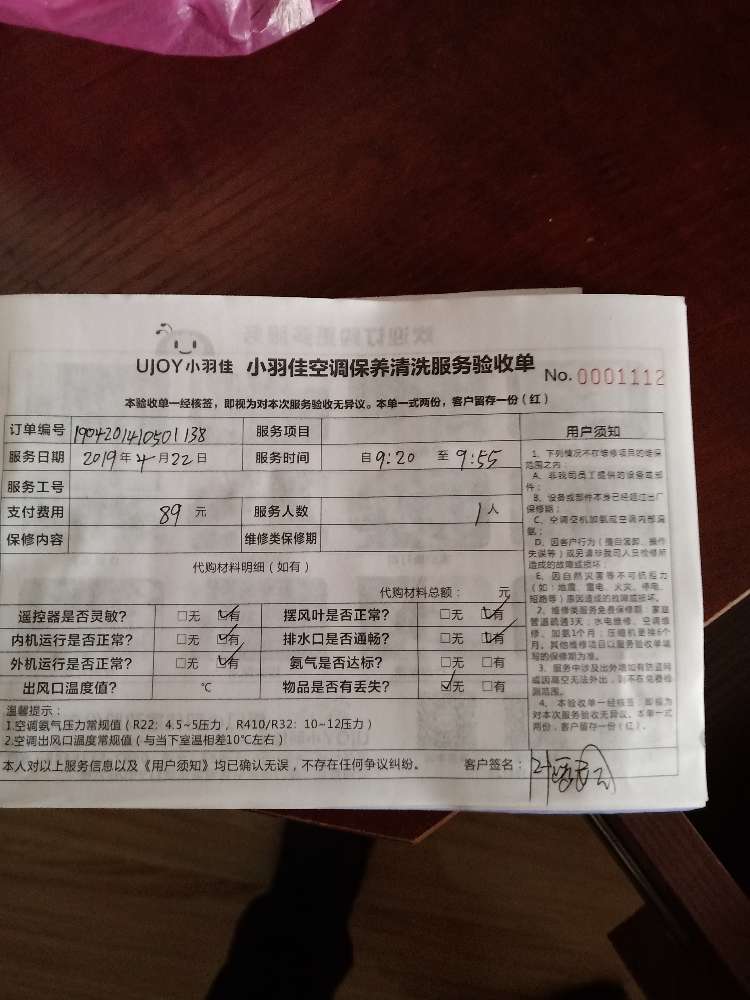 UJOY小羽佳 小羽佳空调保养清洗服务验收单 No. 0001112
本验收单一经核签，即视为对本次服务验收无异议。本单一式两份，客户留存一份（红）
订单编号 1904201410501138 服务项目
服务日期 2019年4月22日 服务时间 自9:20 至9:55
服务工号
支付费用 89 元 服务人数 1人
保修内容 维修类保修期
代购材料明细（如有）
代购材料总额： 元
遥控器是否灵敏? □无 ☑有 摆风叶是否正常? □无 ☑有
内机运行是否正常? □无 ☑有 排水口是否通畅? □无 ☑有
外机运行是否正常? □无 ☑有 氨气是否达标? □无 □有
出风口温度值? ℃ 物品是否有丢失? ☑无 □有
温馨提示：
1.空调氨气压力常规值（R22：4.5~5压力，R410/R32：10~12压力）
2.空调出风口温度常规值（与当下室温相差10℃左右）
本人对以上服务信息以及《用户须知》均已确认无误，不存在任何争议纠纷。 客户签名：
用户须知
1、下列情况不在维修项目的维保
范围之内：
A、非我司员工提供的设备或部
件；
B、设备或部件本身已经超过出厂
保修期；
C、空调空机加氨或空调内部漏
氨；
D、因客户行为（擅自装卸、操作
失误等）或另请非我司人员检修所
造成的故障或损坏；
E、因自然灾害等不可抗拒力
（如：地震、雷电、火灾、停电、
短路等）原因造成的故障或损坏。
2、维修类服务免费保修期：家庭
管道疏通3天；水电维修、空调维
修、加氨1个月；压缩机更换6个
月。其他维修项目以服务验收单填
写的保修期为准。
3、服务中涉及出外墙如有防盗网
或因高空无法外出，则不在免费检
测范围。
4、本验收单一经核签，即视为
对本次服务验收无异议。本单一式
两份，客户留存一份（红）。